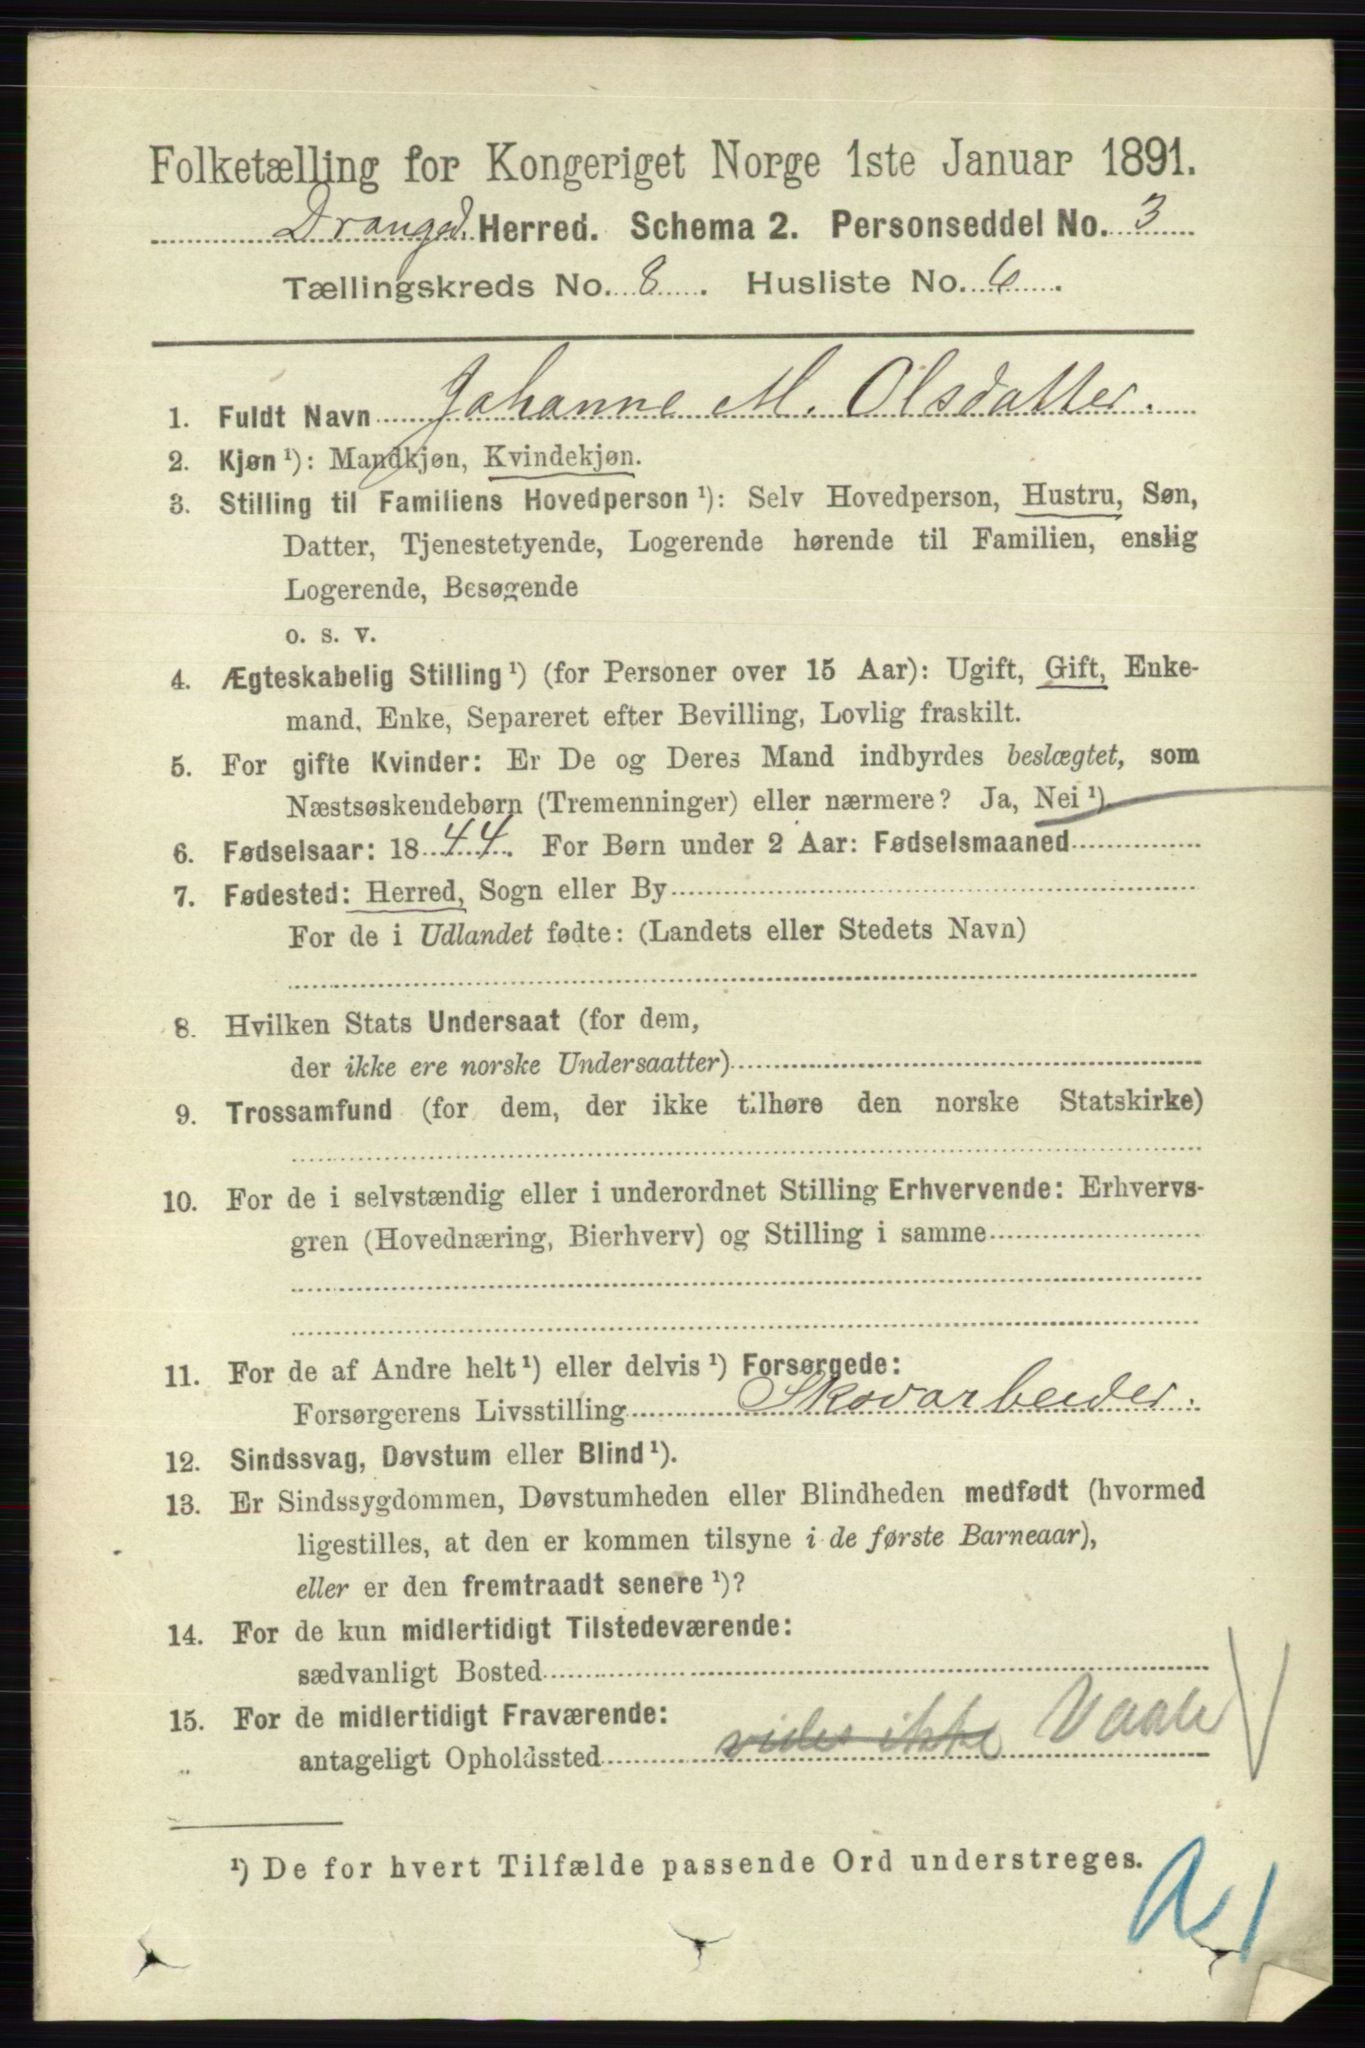 Folketælling for Kongeriget Norge 1ste Januar 1891.
Dranged. Herred. Schema 2. Personseddel No. 3
Tællingskreds No. 8. Husliste No. 6.
1. Fuldt Navn Johanne M. Olsdatter.
2. Kjøn ¹): Mandkjøn, Kvindekjøn.
3. Stilling til Familiens Hovedperson ¹): Selv Hovedperson, Hustru, Søn,
Datter, Tjenestetyende, Logerende hørende til Familien, enslig
Logerende, Besøgende
o. s. v.
4. Ægteskabelig Stilling ¹) (for Personer over 15 Aar): Ugift, Gift, Enke-
mand, Enke, Separeret efter Bevilling, Lovlig fraskilt.
5. For gifte Kvinder: Er De og Deres Mand indbyrdes beslægtet, som
Næstsøskendebørn (Tremenninger) eller nærmere? Ja, Nei ¹)
6. Fødselsaar: 1844. For Børn under 2 Aar: Fødselsmaaned
7. Fødested: Herred, Sogn eller By
For de i Udlandet fødte: (Landets eller Stedets Navn)
8. Hvilken Stats Undersaat (for dem,
der ikke ere norske Undersaatter)
9. Trossamfund (for dem, der ikke tilhøre den norske Statskirke)
10. For de i selvstændig eller i underordnet Stilling Erhvervende: Erhvervs-
gren (Hovednæring, Bierhverv) og Stilling i samme
11. For de af Andre helt ¹) eller delvis ¹) Forsørgede:
Forsørgerens Livsstilling Skovarbeider.
12. Sindssvag, Døvstum eller Blind ¹).
13. Er Sindssygdommen, Døvstumheden eller Blindheden medfødt (hvormed
ligestilles, at den er kommen tilsyne i de første Barneaar),
eller er den fremtraadt senere ¹)?
14. For de kun midlertidigt Tilstedeværende:
sædvanligt Bosted
15. For de midlertidigt Fraværende:
antageligt Opholdssted vides ikke Vaale
¹) De for hvert Tilfælde passende Ord understreges.